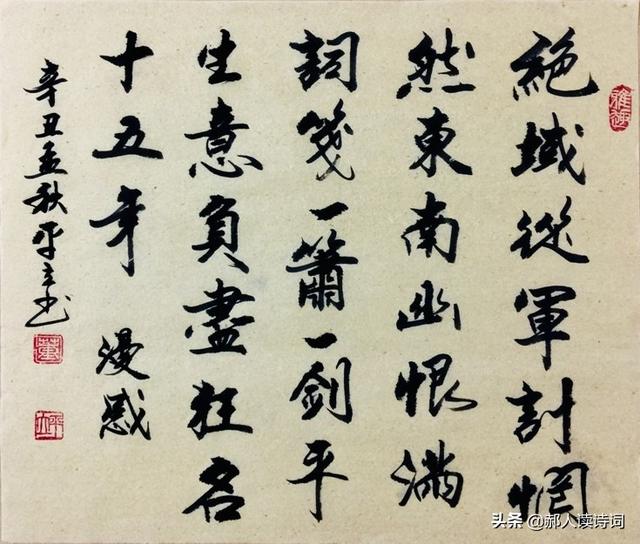 雅趣
絕域從軍計惘
然東南幽恨滿
詞箋一簫一劍平
生意負盡狂名
十五年 漫感
辛丑孟秋平书
头条 @郝人读诗词